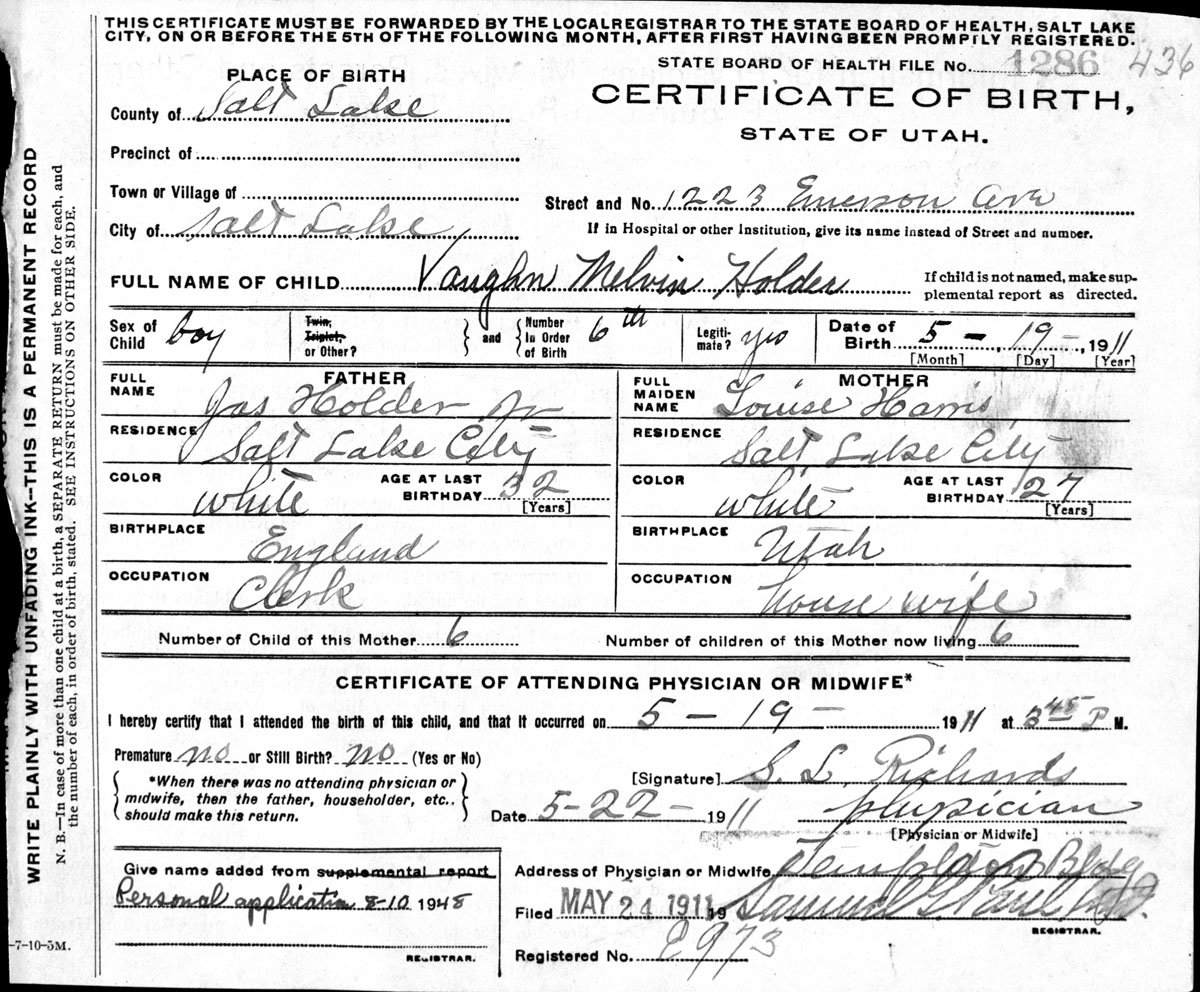 THIS CERTIFICATE MUST BE FORWARDED BY THE LOCAL REGISTRAR TO THE STATE BOARD OF HEALTH, SALT LAKE
CITY, ON OR BEFORE THE 5TH OF THE FOLLOWING MONTH, AFTER FIRST HAVING BEEN PROMPTLY REGISTERED.
STATE BOARD OF HEALTH FILE No. 1286 436
PLACE OF BIRTH
CERTIFICATE OF BIRTH,
STATE OF UTAH.
County of Salt Lake
Precinct of
Town or Village of
Street and No. 1223 Emerson Ave
City of Salt Lake
If in Hospital or other Institution, give its name instead of Street and number.
FULL NAME OF CHILD Vaughn Melvin Holder
If child is not named, make sup-
plemental report as directed.
Sex of Child boy
Twin, Triplet, or Other? and Number In Order of Birth 6th
Legiti-mate? yes
Date of Birth 5 - 19 - , 1911
[Month] [Day] [Year]
FATHER
FULL NAME Jas Holder Jr
RESIDENCE Salt Lake City
COLOR white AGE AT LAST BIRTHDAY 32 [Years]
BIRTHPLACE England
OCCUPATION Clerk
MOTHER
FULL MAIDEN NAME Louise Harris
RESIDENCE Salt Lake City
COLOR white AGE AT LAST BIRTHDAY 27 [Years]
BIRTHPLACE Utah
OCCUPATION house wife
Number of Child of this Mother 6 Number of children of this Mother now living 6
CERTIFICATE OF ATTENDING PHYSICIAN OR MIDWIFE*
I hereby certify that I attended the birth of this child, and that it occurred on 5 - 19 - 1911 at 3 45 P M.
Premature no or Still Birth? no (Yes or No)
*When there was no attending physician or
midwife, then the father, householder, etc.,
should make this return.
[Signature] S. L. Richards
Date 5-22- 1911 physician
[Physician or Midwife]
Give name added from supplemental report
Personal application 8-10 1948
REGISTRAR.
Address of Physician or Midwife Templeton Bldg
Filed MAY 24 1911 19 Samuel G. Paul M.D.
REGISTRAR.
Registered No. E973
-7-10-5M.
WRITE PLAINLY WITH UNFADING INK—THIS IS A PERMANENT RECORD
N. B.—In case of more than one child at a birth, a SEPARATE RETURN must be made for each, and
the number of each, in order of birth, stated. SEE INSTRUCTIONS ON OTHER SIDE.